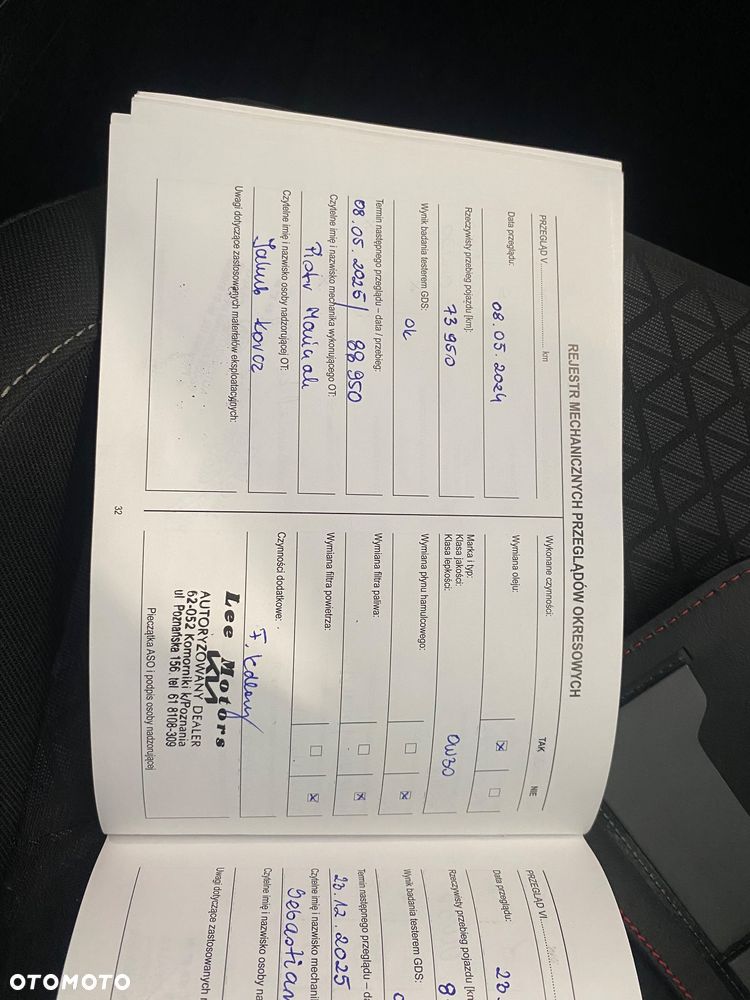 REJESTR MECHANICZNYCH PRZEGLĄDÓW OKRESOWYCH
PRZEGLĄD V .......................... km
Data przeglądu:
08.05.2024
Rzeczywisty przebieg pojazdu [km]:
73 950
Wynik badania testerem GDS:
ok
Termin następnego przeglądu – data / przebieg:
08.05.2025 / 88 950
Czytelne imię i nazwisko mechanika wykonującego OT:
Piotr
Czytelne imię i nazwisko osoby nadzorującej OT:
Jakub Korcz
Uwagi dotyczące zastosowanych materiałów eksploatacyjnych:
Wykonane czynności:
TAK NIE
Wymiana oleju:
Marka i typ:
Klasa jakości:
Klasa lepkości:
0W30
Wymiana płynu hamulcowego:
Wymiana filtra paliwa:
Wymiana filtra powietrza:
Czynności dodatkowe:
Lee Motors
AUTORYZOWANY DEALER
62-052 Komorniki k/Poznania
ul Poznańska 156, tel 61 8108-309
Pieczątka ASO i podpis osoby nadzorującej
32
PRZEGLĄD VI
Data przeglądu:
Rzeczywisty przebieg pojazdu [km
8
Wynik badania testerem GDS:
Termin następnego przeglądu – da
20.12.2025
Czytelne imię i nazwisko mechani
Sebastian
Czytelne imię i nazwisko osoby na
Uwagi dotyczące zastosowanych
OTOMOTO